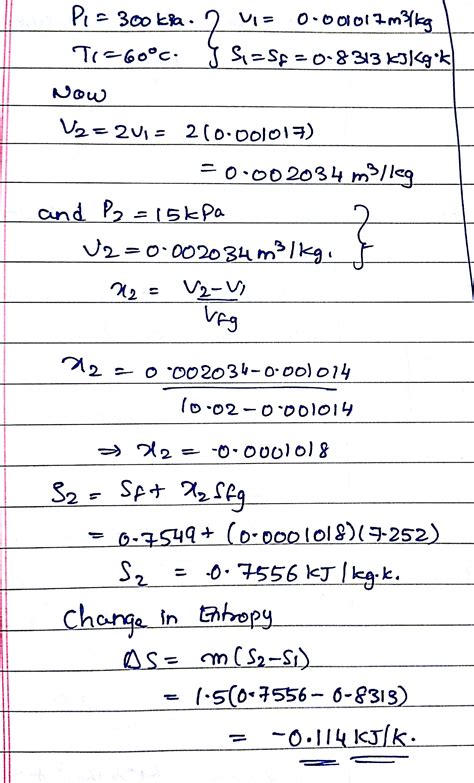 P1 = 300 kPa. } v1 = 0.001017 m³/kg
T1 = 60°c. } S1 = Sf = 0.8313 kJ/kg·k
Now
V2 = 2v1 = 2(0.001017)
= 0.002034 m³/kg
and P2 = 15 kPa }
V2 = 0.002034 m³/kg. }
x2 = V2 - V1 / Vfg
x2 = 0.002034 - 0.001014 / 10.02 - 0.001014
⇒ x2 = 0.0001018
S2 = Sf + x2 Sfg
= 0.7549 + (0.0001018)(7.252)
S2 = 0.7556 KJ/kg.k.
Change in Entropy
ΔS = m(S2-S1)
= 1.5(0.7556 - 0.8313)
= -0.114 KJ/k.